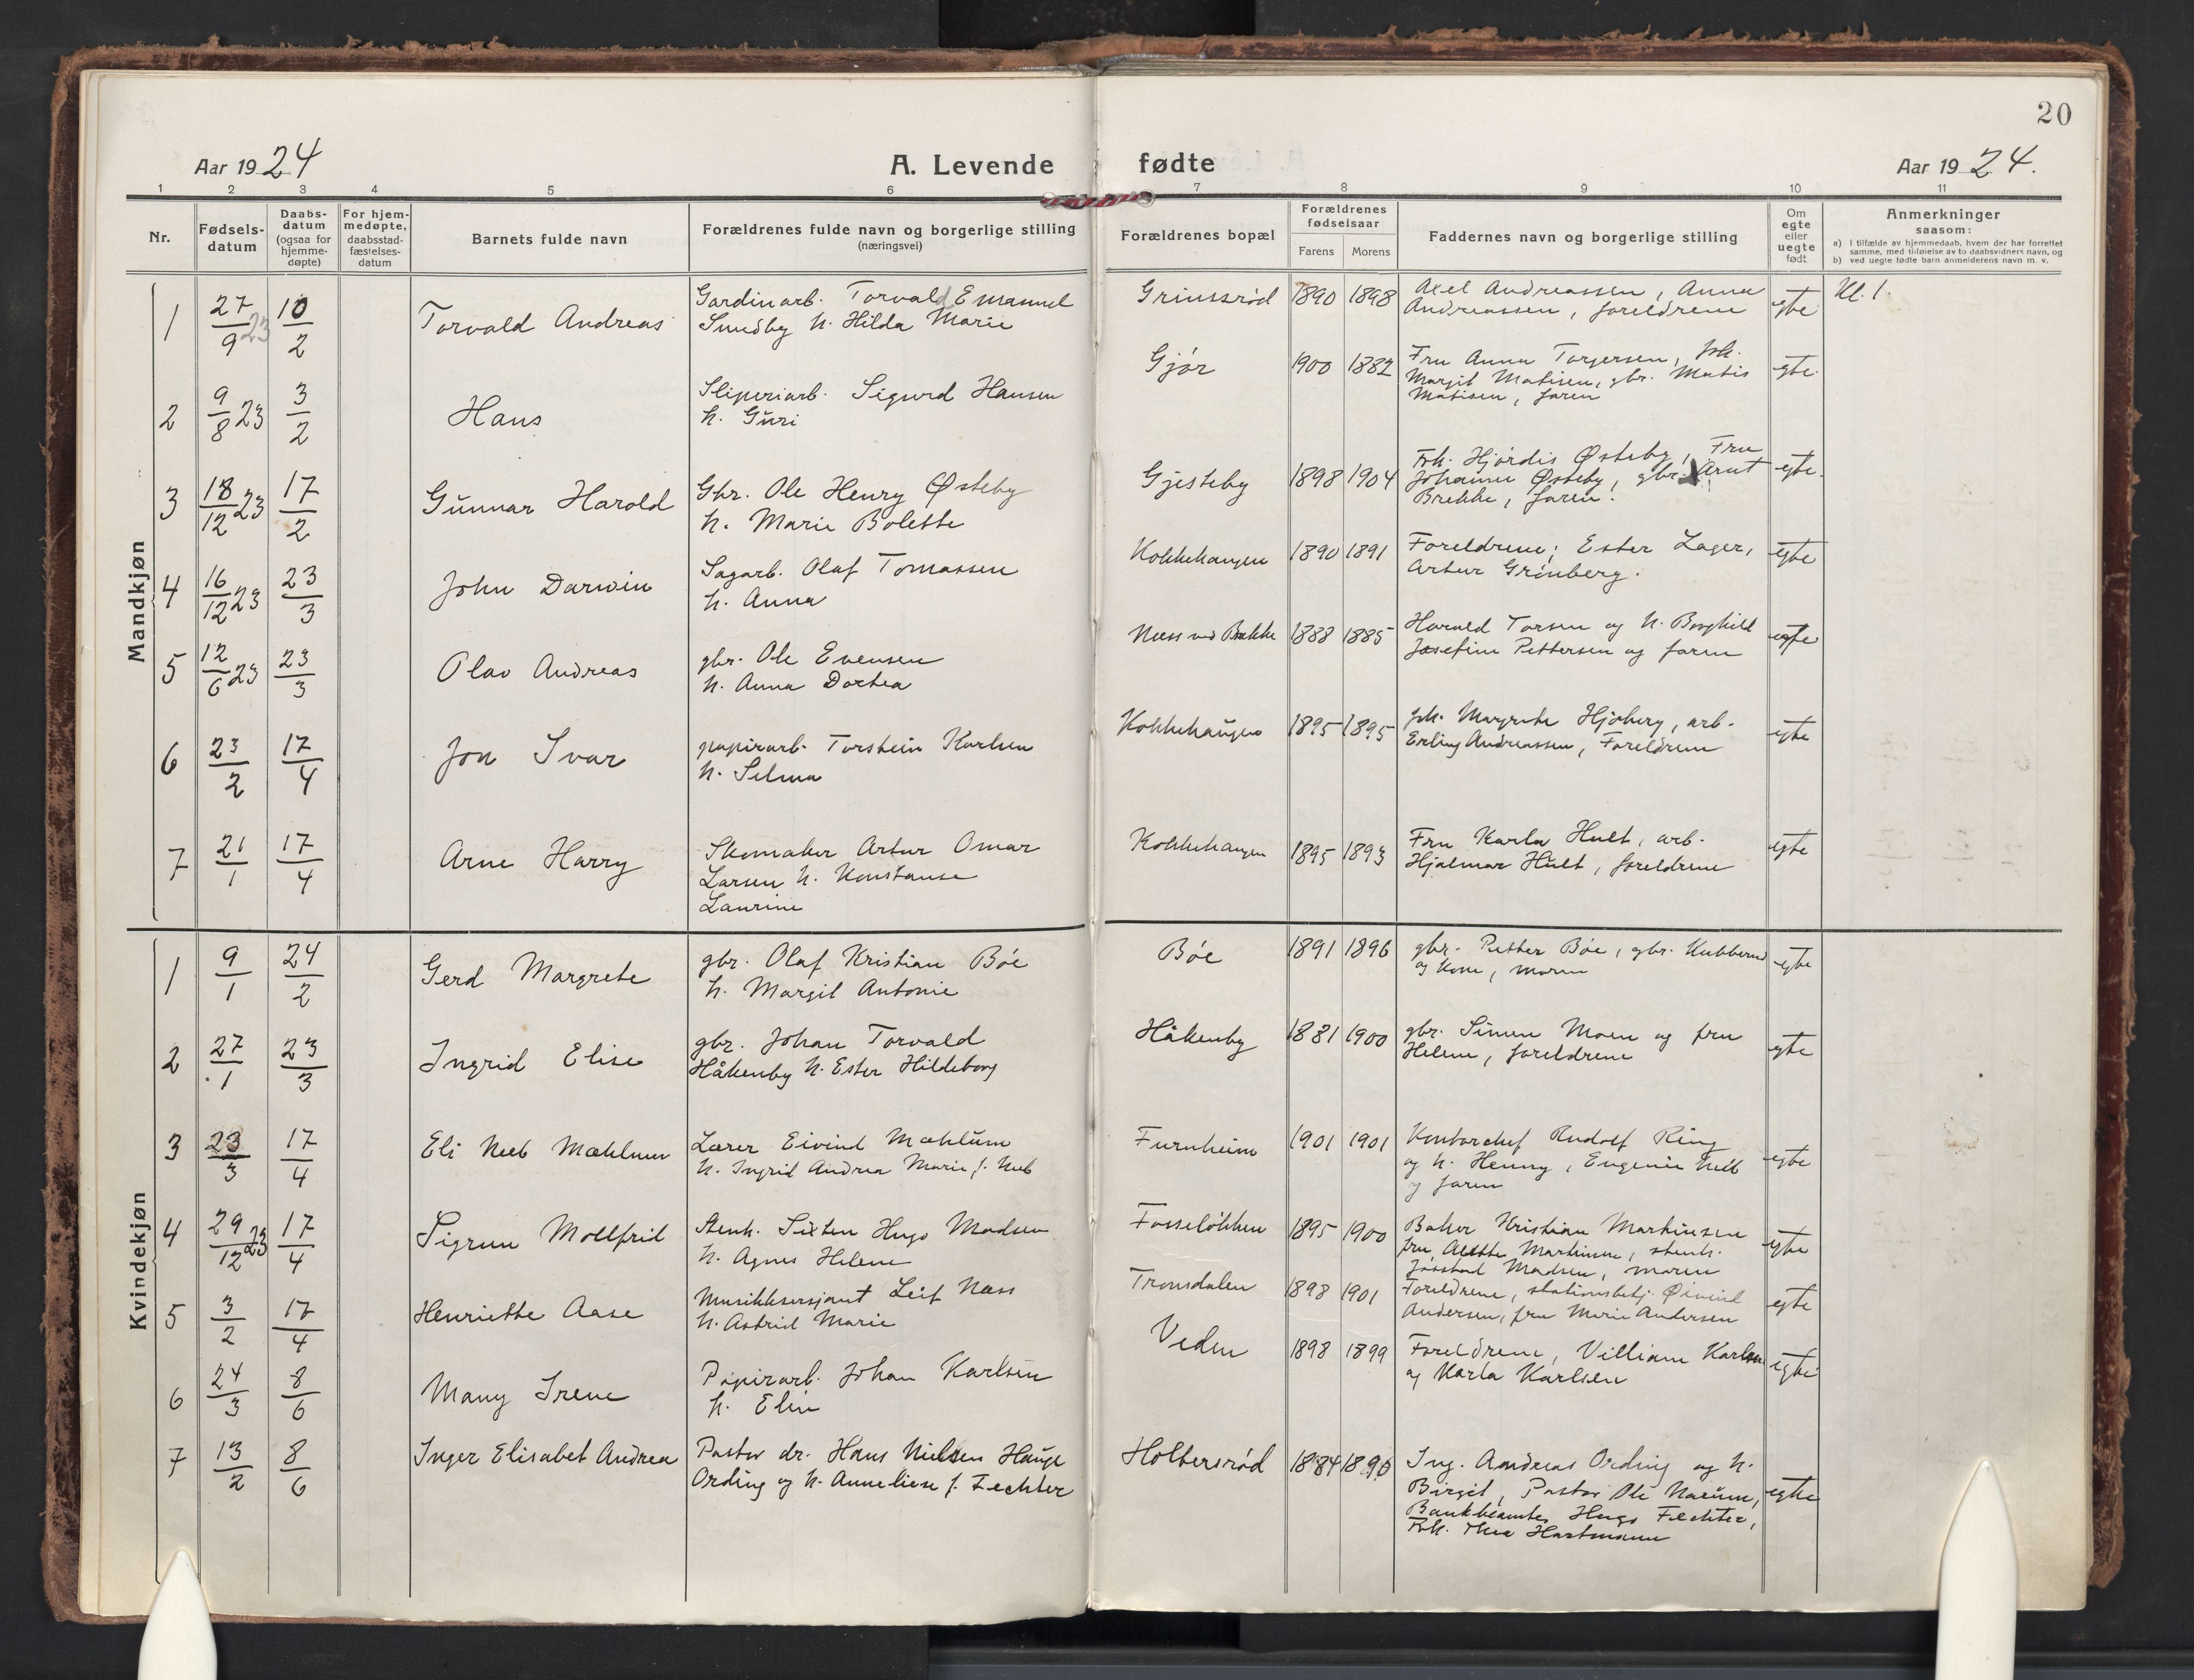 20
Aar 1924
A. Levende fødte
Aar 1924.
1 2 3 4 5 6 7 8 9 10 11
Nr.
Fødsels-
datum
Daabs-
datum
(ogsaa for
hjemme-
døpte)
For hjem-
medøpte,
daabsstad-
fæstelses-
datum
Barnets fulde navn
Forældrenes fulde navn og borgerlige stilling
(næringsvei)
Forældrenes bopæl
Forældrenes
fødselsaar
Farens Morens
Faddernes navn og borgerlige stilling
Om
egte
eller
uegte
født
Anmerkninger
saasom:
a) i tilfælde av hjemmedaab, hvem der har forrettet
samme, med tilføielse av to daabsvidners navn, og
b) ved uegte fødte barn anmelderens navn m. v.
Mandkjøn
1 27/9 23 10/2 Torvald Andreas
Gardinarb. Torvald Emanuel
Sundby h. Hilda Marie
Grinsrød 1890 1898
Axel Andreassen, Anna
Andreassen, foreldrene
egte
Kl. 1.
2 9/8 23 3/2 Hans
Sliperiarb. Sigurd Hansen
h. Guri
Gjør 1900 1882
Fru Anna Torgersen, frk.
Margit Matisen, gbr. Matis
Matisen, faren
egte
3 18/12 23 17/2 Gunnar Harold
Gbr. Ole Henry Østeby
h. Marie Bolette
Gjesteby 1898 1904
Frk. Hjørdis Østeby, Fru
Johanne Østeby, gbr. Arnt
Brekke, faren.
egte.
4 16/12 23 23/3 John Darwin
Sagarb. Olaf Tomassen
h. Anna
Kokkehaugen 1890 1891
Foreldrene; Ester Lager,
Artur Grinberg.
egte
5 12/6 23 23/3 Olav Andreas
gbr. Ole Evensen
h. Anna Dortea
Næss ved Brekke 1888 1885
Harald Torsen og h. Borghild
Josefine Pettersen og faren
egte
6 23/2 17/4 Jon Ivar
papirarb. Torstein Karlsen
h. Selma
Kokkehaugen 1895 1895
frk. Margrete Hjoberg, arb.
Erling Andreassen, Foreldrene
egte
7 21/1 17/4 Arne Harry
Skomaker Artur Omar
Larsen h. Konstanse
Laurine
Kokkehaugen 1895 1893
Fru Karla Hult, arb.
Hjalmar Hult, foreldrene
egte
Kvindekjøn
1 9/1 24/2 Gerd Margrete
gbr. Olaf Kristian Bøe
h. Margit Antonie
Bøe 1891 1896
gbr. Petter Bøe, gbr. Kubberød
og kone, moren
egte
2 27/1 23/3 Ingrid Elise
gbr. Johan Torvald
Håkenby h. Ester Hildeborg
Håkenby 1881 1900
gbr. Simen Moen og fru
Helene, foreldrene
egte
3 23/3 17/4 Eli Neeb Mæhlum
Lærer Eivind Mæhlum
h. Ingrid Andrea Marie f. Neeb
Furuheim 1901 1901
Kontorchef Rudolf Ring
og h. Henny, Eugenie Neeb
og faren
egte
4 29/12 23 17/4 Sigrun Mollfrid
Stenh. Sixten Hugo Madsen
h. Agnes Helene
Fosseløkken 1895 1900
Baker Kristian Martinsen
fru Martinsen, stenh.
Madsen, moren
egte
5 3/2 17/4 Henriette Aase
Musikksersjant Leif Næss
h. Astrid Marie
Tronsdalen 1898 1901
Foreldrene, stationsbetj. Øivind
Andersen, fru Marie Andersen
egte
6 24/3 8/6 Mary Irene
Papirarb. Johan Karlsen
h. Elin
Veden 1898 1899
Foreldrene, Villiam Karlsen
og Karla Karlsen
egte
7 13/2 8/6 Inger Elisabet Andrea
Pastor dr. Hans Nielsen Hauge
Ording og h. Anneliese f. Fechter
Holtersrød 1884 1890
Ing. Andreas Ording og h.
Birgit, Pastor Ole Narum,
Bankbeamter Hugo Fechter,
Frk. Thea Hartmann
egte